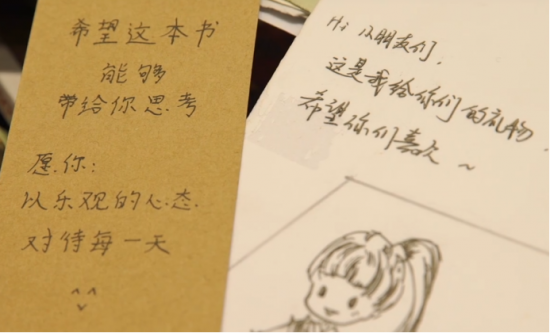 希望这本书
能够
带给你思考
愿你:
以乐观的心态.
对待每一天
^^
Hi 小朋友们,
这是我给你们的礼物,
希望你们喜欢~